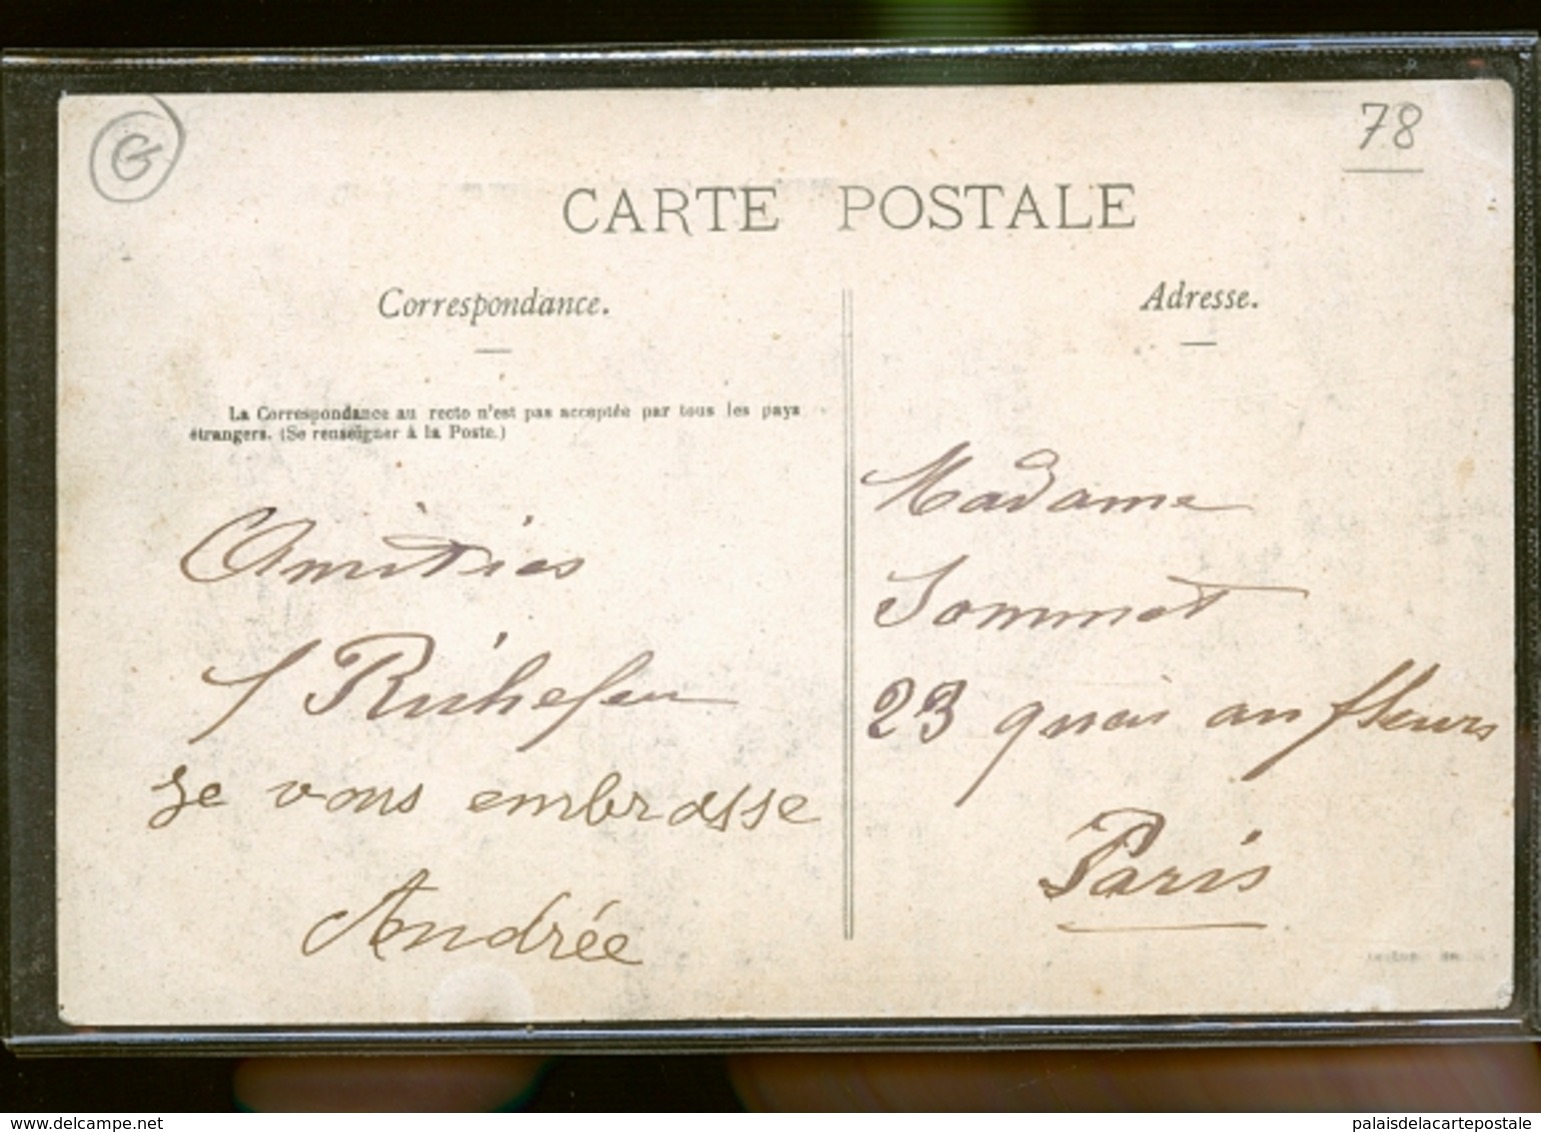 G
78
CARTE POSTALE
Correspondance.
La Correspondance au recto n'est pas acceptée par tous les pays
étrangers. (Se renseigner à la Poste.)
Amitiés
Richefeu
Je vous embrasse
Andrée
Adresse.
Madame
Sommet
23 quai au fleurs
Paris
www.delcampe.net
palaisdelacartepostale